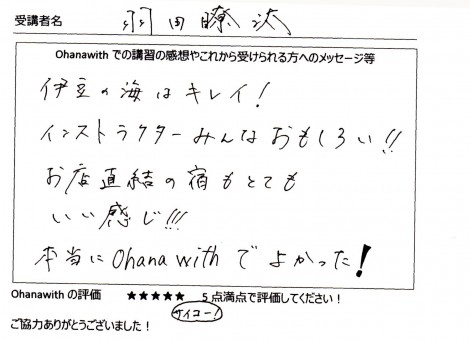 受講者名 羽田暸汰
Ohanawith での講習の感想やこれから受けられる方へのメッセージ等
伊豆の海はキレイ!
インストラクターみんなおもしろい!!
お店直結の宿もとても
いい感じ!!!
本当にOhana withでよかった!
Ohanawith の評価 ★★★★★ 5点満点で評価してください!
サイコー!
ご協力ありがとうございました!